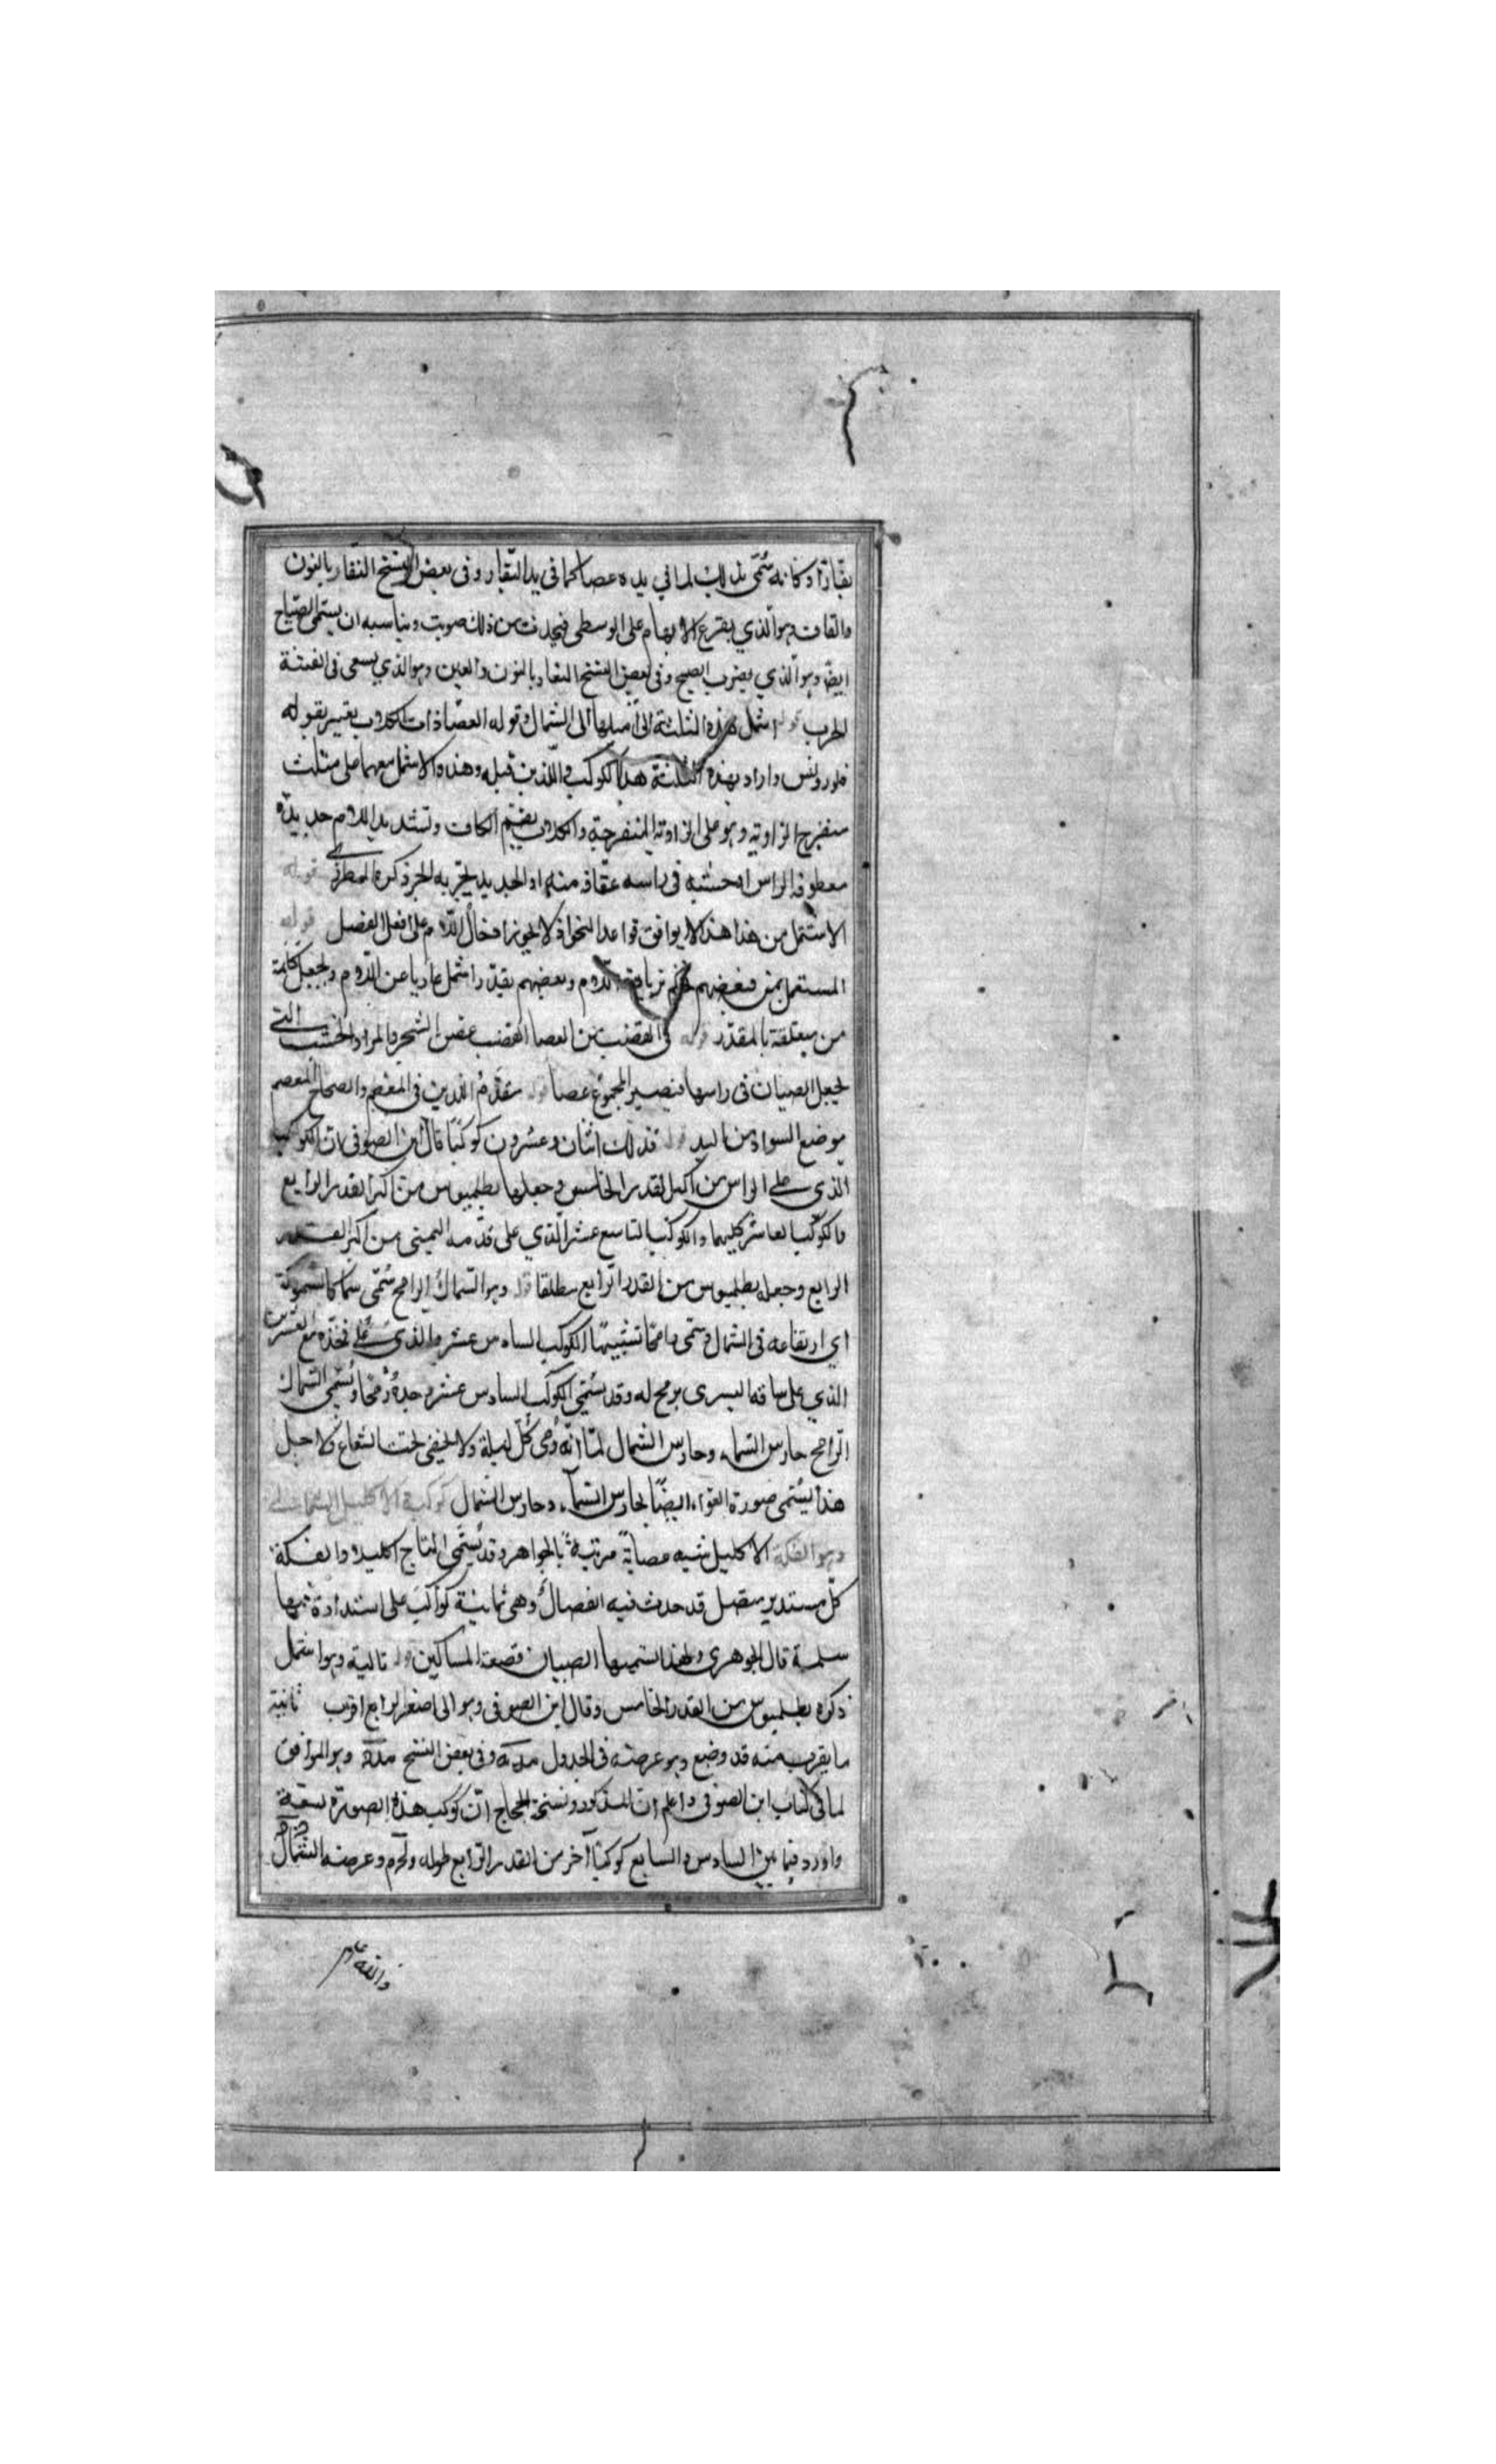 بقّارًا وكانه سُمّى بذلك لما في يده عصا كما في يد البقّار وفى بعض النسخ النقار بالنون
والقاف وهو الذي يقرع الابهام على الوسطى فيحدث من ذلك صويت ويناسبه ان يسمى الصيّاح
ايضًا وهو الذي يضرب الصيح وفى بعض النسخ النعار بالنون والعين وهو الذي يسعى فى الفتنة
الحرب قوله اشمل هذه الثلثة اى اميلها الى الشمال وقوله العصا ذات الكلاب يفسر بقوله
قلوروبس واراد بهذه الثلثة هذا الكوكب واللذين قبله وهذا والاشمل معهما على مثلث
منفرج الزاوية وهو على الزاوية المنفرجة والكلاب بضم الكاف وتشديد اللام حديدة
معطوفة الراس او خشبة فى راسه عقافة منها او الحديد يجر به الجر ذكره المطرزى قوله
الاشمل من هذا هذا لا يوافق قواعد النحو اذ لا يجوز ادخال اللام على افعل التفضيل
المستعمل بمن فبعضهم بزيادة اللام وبعضهم يقدّر اشمل عاريا عن اللام ويجعل كلمة
من متعلقة بالمقدّر قوله فى القضيب من العصا القضيب غصن الشجر والمراد الخشب التى
يجعل الصبيان فى راسها فيصير المجموع عصا قوله متقدم اللذين فى المعصم والصحاح المعصم
موضع السوار من اليد قوله فذلك اثنان وعشرون كوكبًا قال ابن الصوفى ان الكوكب
الذى على الراس من اكبر القدر الخامس وجعلها بطلميوس من اكبر القدر الرابع
والكوكب العاشر كليهما والكوكب التاسع عشر الذي على قدمه اليمنى من اكبر القدر
الرابع وجعله بطلميوس من القدر الرابع مطلقا قوله وهو السماك الرامح سُمّى سماكا لسموكه
اي ارتفاعه فى الشمال وسمى رامحًا تشبيهًا الكوكب السادس عشر والذى على فخذه مع العشرين
الذي على ساقه اليسرى برمح له وقد يسُمّى الكوكب السادس عشر وحده رُمحًا ويُسمّى السماك
الرامح حارس السماء وحارس الشمال لما انّه يُرى كل ليلة ولا يخفى تحت الشعاع ولاجل
هذا يُسمّى صورة العوّاء ايضًا بحارس السماء وحارس الشمال كوكبة الاكليل الشمالى
وهو الفكة الاكليل شبه عصابة مزينة بالجواهر وقد يُسمّى التاج اكليلا والفكة
كل مستدير متصل قد حدث فيه انفصال وهى ثمانية كواكب على استدارة فيها
ثلمة قال الجوهرى ولهذا تسميها الصبيان قصعة المساكين قوله تالية وهو اشمل
ذكره بطلميوس من القدر الخامس وقال ابن الصوفى وهو الى اصغر الرابع اقرب ثانية
ما يقرب منه قد وضع وهو عرضه فى الجدول مد م وفى بعض النسخ مد ن وهو الموافق
لما فى كتاب ابن الصوفى واعلم ان المذكور ونسخة الحجاج انّ كوكب هذه الصورة تسعة
واورد فيما بين السادس والسابع كوكبًا آخر من القدر الرابع طوله وعرضه الشمال
والله اعلم